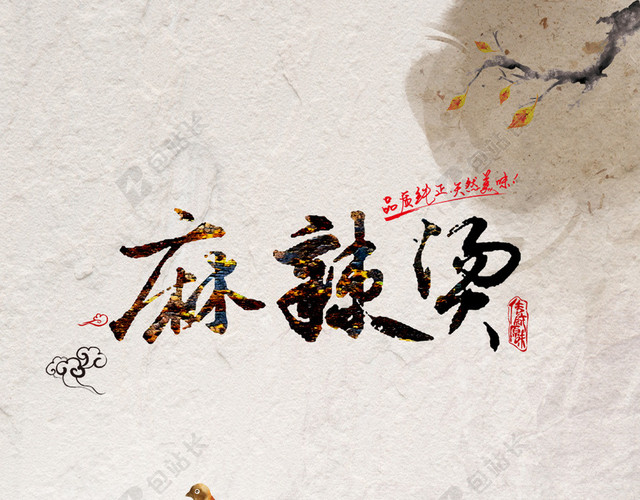 品质纯正 天然美味
麻辣烫
包站长
包站长
包站长
包站长